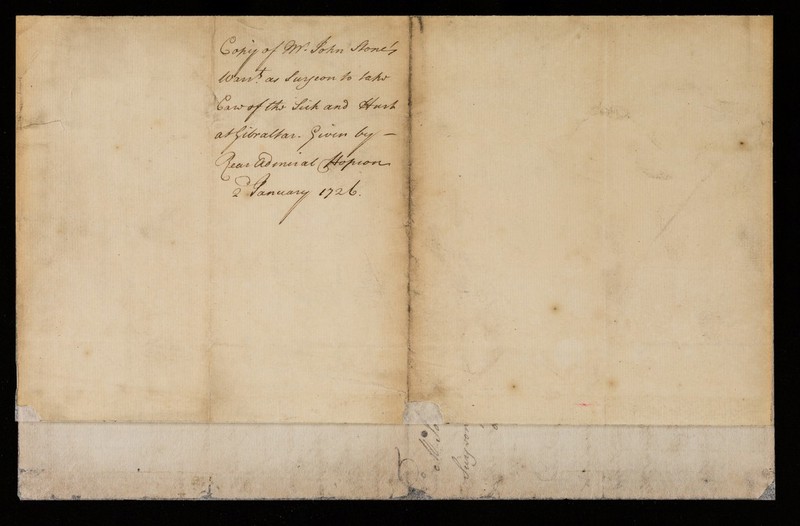 Copy of Mr. John Stone's
Warrt. as Surgeon to take
Care of the Sick and Hurt
at Gibraltar. Given by —
Rear Admiral Hopson
2d January 1726.
Surgeon